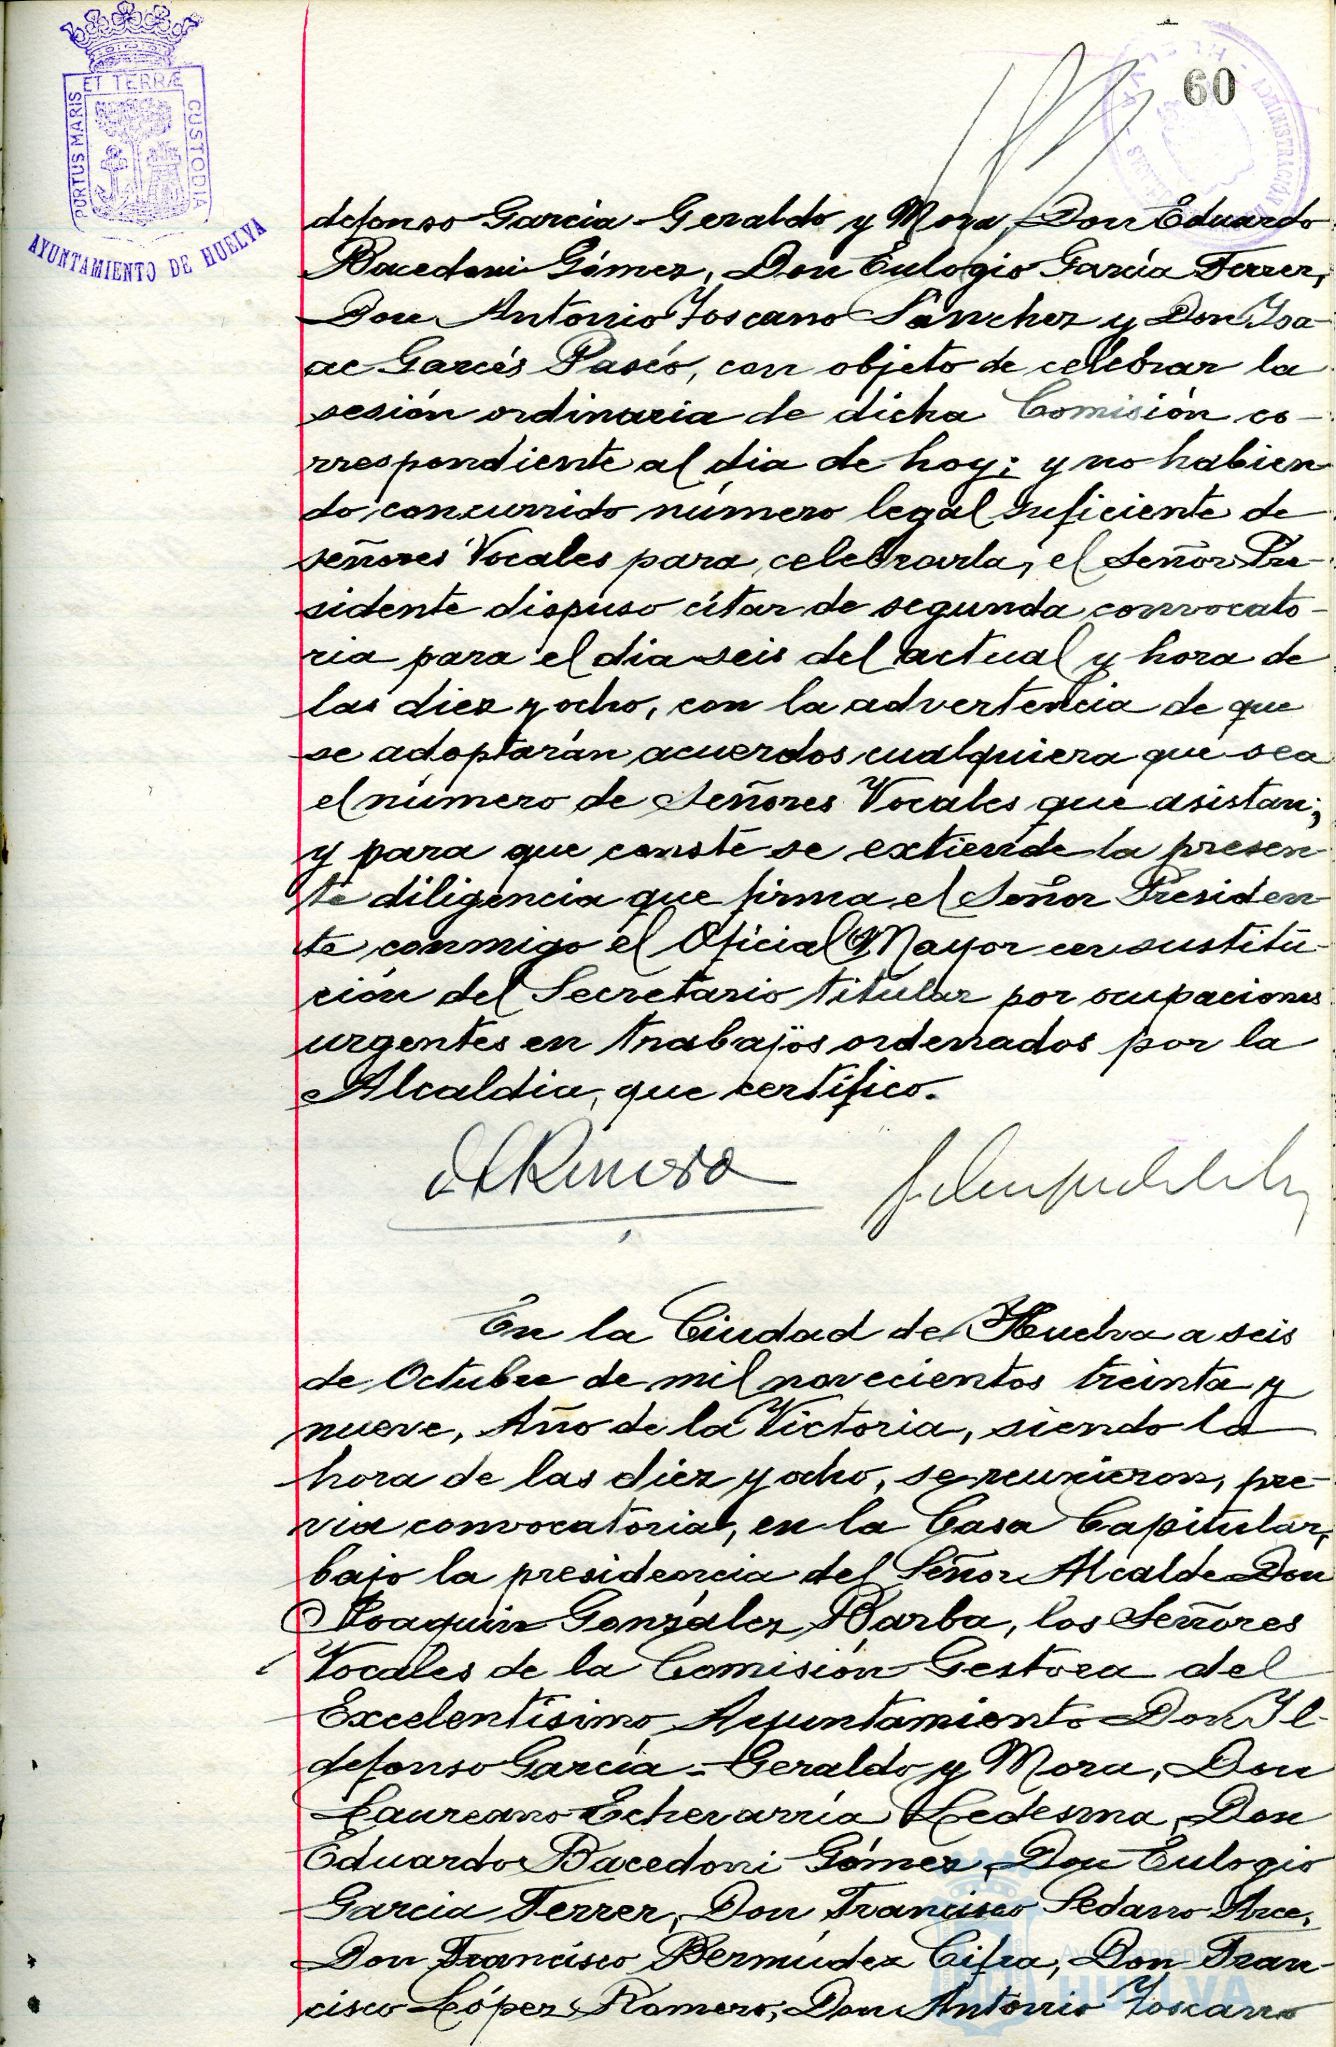 PORTUS MARIS ET TERRÆ CUSTODIA
AYUNTAMIENTO DE HUELVA
60
defonso Garcia-Geraldo y Mora, Don Eduardo
Bacedoni Gómez, Don Eulogio García Ferrer,
Don Antonio Toscano Sánchez y Don Isa-
ac Garcés Pascó, con objeto de celebrar la
sesión ordinaria de dicha Comisión co-
rrespondiente al dia de hoy; y no habien
do concurrido número legal suficiente de
señores Vocales para celebrarla, el Señor Pre-
sidente dispuso citar de segunda convocato-
ria para el dia seis del actual y hora de
las diez y ocho, con la advertencia de que
se adoptarán acuerdos cualquiera que sea
el número de Señores Vocales que asistan;
y para que conste se extiende la presen
te diligencia que firma el Señor Presiden
te conmigo el Oficial Mayor en sustitu-
ción del Secretario titular por ocupaciones
urgentes en trabajos ordenados por la
Alcaldia, que certifico.
En la Ciudad de Huelva a seis
de Octubre de mil novecientos treinta y
nueve, Año de la Victoria, siendo la
hora de las diez y ocho, se reunieron, pre-
via convocatoria, en la Casa Capitular,
bajo la presidencia del Señor Alcalde Don
Joaquin González Barba, los Señores
Vocales de la Comisión Gestora del
Excelentísimo Ayuntamiento Don Il-
defonso García-Geraldo y Mora, Don
Laureano Echevarría Ledesma, Don
Eduardo Bacedoni Gómez, Don Eulogio
Garcia Ferrer, Don Francisco Sedano Arce,
Don Francisco Bermúdez Cifra, Don Fran-
cisco López Romero, Don Antonio Toscano
Ayuntamiento de
HUELVA